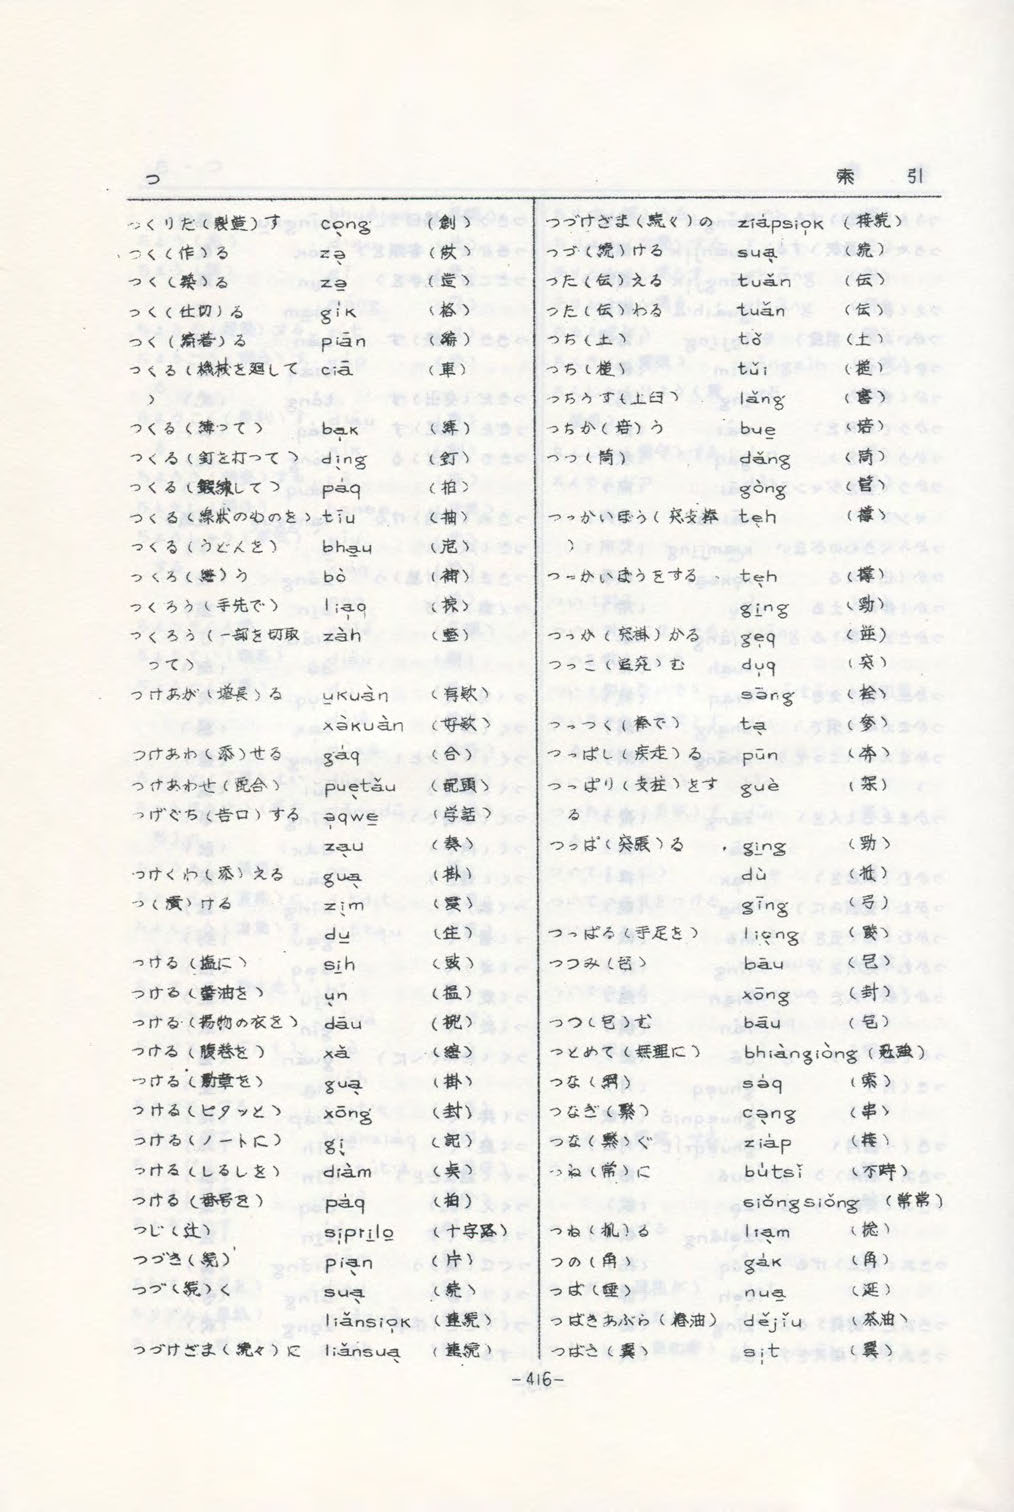 つ
索 引
つくりだ(製造)す cọng (創)
つく(作)る zạ̀ (做)
つく(築)る zə̠ (造)
つく(仕切)る gi̍k (格)
つく(編著)る piān (編)
つくる(機械を廻して ciā (車)
)
つくる(縛って) bạk (縛)
つくる(釘を打って) dịng (釘)
つくる(鍛練して) páq (拍)
つくる(糸状のものを) tīu (抽)
つくる(うどんを) bha̠u
つくろ(繕)う bò (補)
つくろう(手先で) liạq (掠)
つくろう(一部を切取 zàh (整)
って)
つけあが(増長)る u̠kuàn (有款)
xàkuàn (好款)
つけあわ(添)せる gáq (合)
つけあわせ(配合) puẹtǎu (配頭)
つげぐち(告口)する ạqwe̠ (学話)
zạu (奏)
つけくわ(添)える guạ (掛)
つ(漬)ける zịm (浸)
du̠ (住)
つける(塩に) si̠h (豉)
つける(醤油を) ụn (搵)
つける(揚物の衣を) dāu
つける(腹巻を) xà
つける(勲章を) guạ (掛)
つける(ピタッと) xōng (封)
つける(ノートに) gị (記)
つける(しるしを) diàm (点)
つける(番号を) páq (拍)
つじ(辻) sịpri̠lo̠ (十字路)
つづき(続) piạn (片)
つづ(続)く suạ (続)
liǎnsiọk (連続)
つづけざま(続々)に liǎnsuạ (連続)
つづけざま(続く)の ziápsiọk (接続)
つづ(続)ける suạ (続)
つた(伝)える tuǎn (伝)
つた(伝)わる tuǎn (伝)
つち(土) tǒ (土)
つち(槌) tǔi (槌)
つちうす(土臼) lǎng
つちか(培)う bue̠ (培)
つつ(筒) dǎng (筒)
gòng (管)
つっかいぼう(突支棒 tẹh (撐)
)
つっかいぼうをする tẹh (撐)
gi̠ng (勁)
つっか(突掛)かる gẹq (逆)
つっこ(追突)む dụq (突)
sāng
つっつく(棒で) tạ
つっぱし(疾走)る pūn (奔)
つっぱり(支柱)をす guè (架)
る
つっぱ(突張)る gi̠ng (勁)
dù (抵)
gīng (弓)
つっぱる(手足を) liọng
つつみ(包) bāu (包)
xōng (封)
つつ(包)む bāu (包)
つとめて(無理に) bhiàngiòng (勉強)
つな(綱) sáq (索)
つなぎ(繋) cạng (串)
つな(繋)ぐ ziáp (接)
つね(常)に bútsǐ (不時)
siǒngsiǒng (常常)
つね(抓)る liạm (捻)
つの(角) gák (角)
つば(唾) nua̠ (涎)
つばきあぶら(椿油) dějǐu (茶油)
つばさ(翼) sịt (翼)
-416-